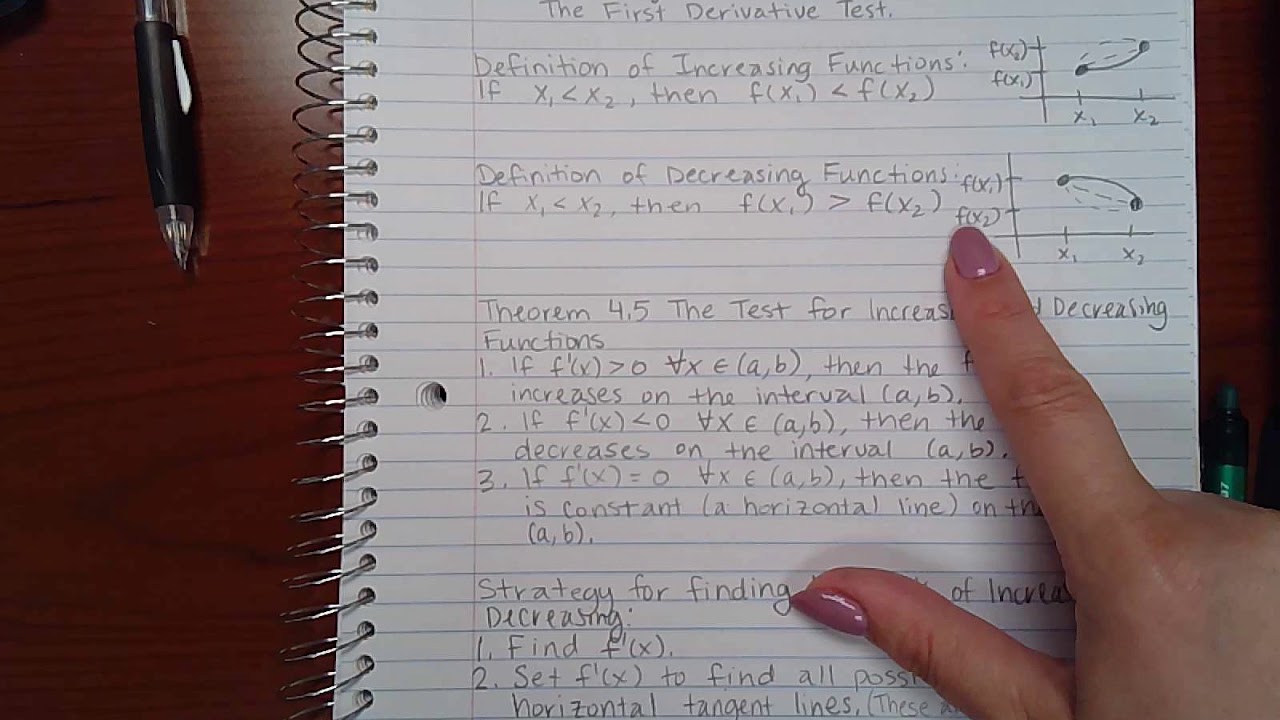 The First Derivative Test.
Definition of Increasing Functions:
If x₁ < x₂, then f(x₁) < f(x₂)
f(x₂)
f(x₁)
x₁ x₂
Definition of Decreasing Functions:
If x₁ < x₂, then f(x₁) > f(x₂)
f(x₁)
f(x₂)
x₁ x₂
Theorem 4.5 The Test for Decreasing
Functions
1. If f'(x) > 0 ∀x ∈ (a,b), then the
increases on the interval (a,b).
2. If f'(x) < 0 ∀x ∈ (a,b), then the
decreases on the interval (a,b).
3. If f'(x) = 0 ∀x ∈ (a,b), then the
is constant (a horizontal line) on
(a,b).
Strategy for finding of
Decreasing:
1. Find f'(x).
2. Set f'(x) to find all
horizontal tangent lines. (These